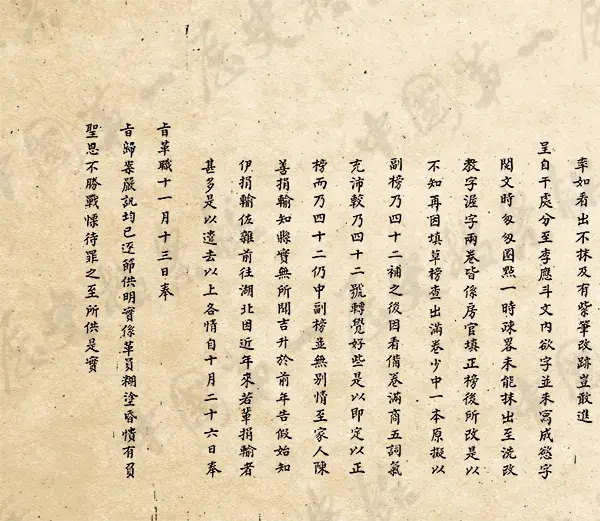 率如看出不抹及有紫筆改跡豈敢進
呈自干處分至李應斗文內欲字並未寫成慾字
閱文時匆匆圈點一時疎畧未能抹出至洗改
教字渥字兩卷皆係房官填正榜後所改是以
不知再因填草榜查出滿卷少中一本原擬以
副榜乃四十二補之後因看備卷滿商五詞氣
充沛較乃四十二號轉覺好些是以即定以正
榜而乃四十二仍中副榜並無別情至家人陳
善捐輸知縣實無所聞吉升於前年告假始知
伊捐輸佐雜前往湖北因近年來若輩捐輸者
甚多是以遣去以上各情自十月二十六日奉
旨革職十一月十三日奉
旨歸案嚴訊均已逐節供明實係革員糊塗昏憒有負
聖恩不勝戰慄待罪之至所供是實